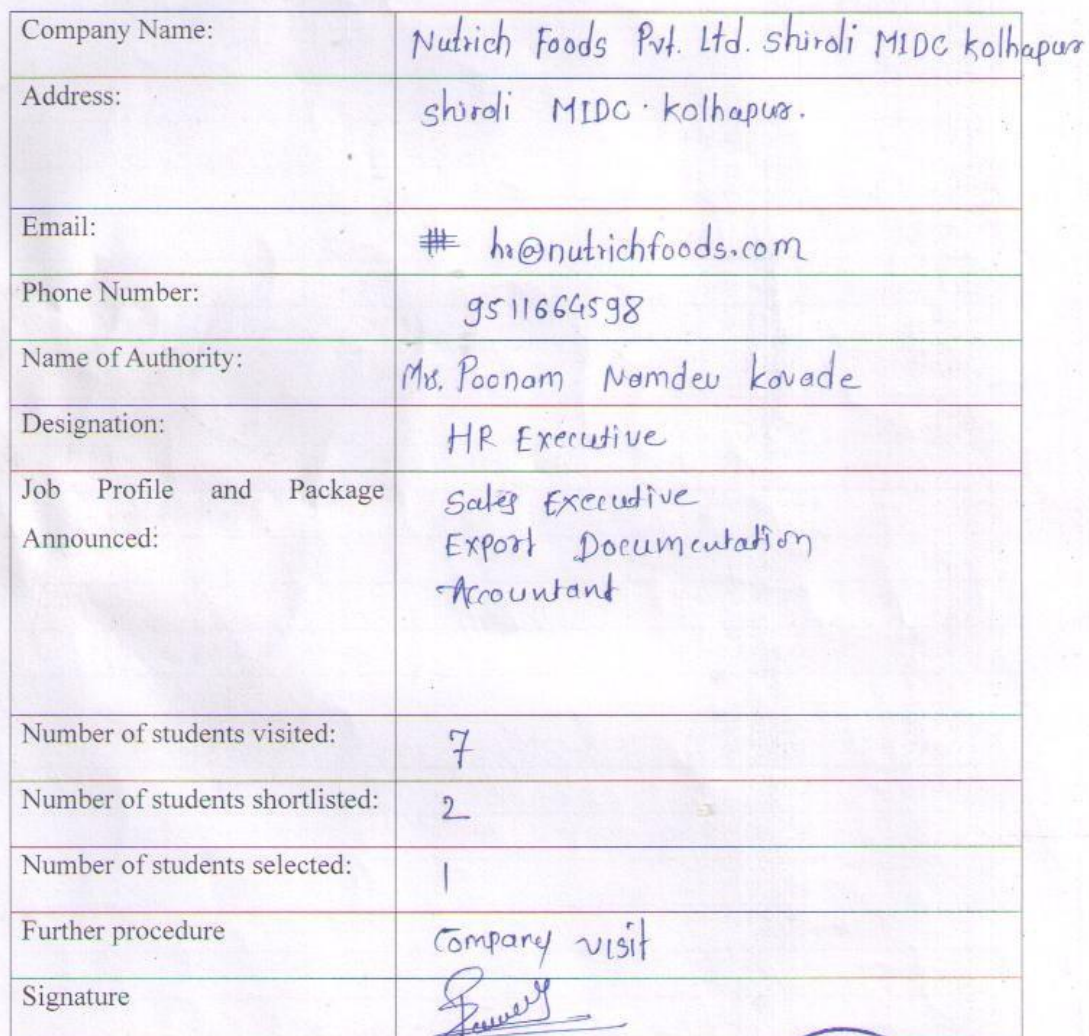 Company Name: Nutrich Foods Pvt. Ltd. Shiroli MIDC kolhapur
Address: Shiroli MIDC. kolhapur.
Email: hr@nutrichfoods.com
Phone Number: 9511664598
Name of Authority: Ms. Poonam Namdev kavade
Designation: HR Executive
Job Profile and Package Sales Executive
Announced: Export Documentation
Accountant
Number of students visited: 7
Number of students shortlisted: 2
Number of students selected: 1
Further procedure Company visit
Signature